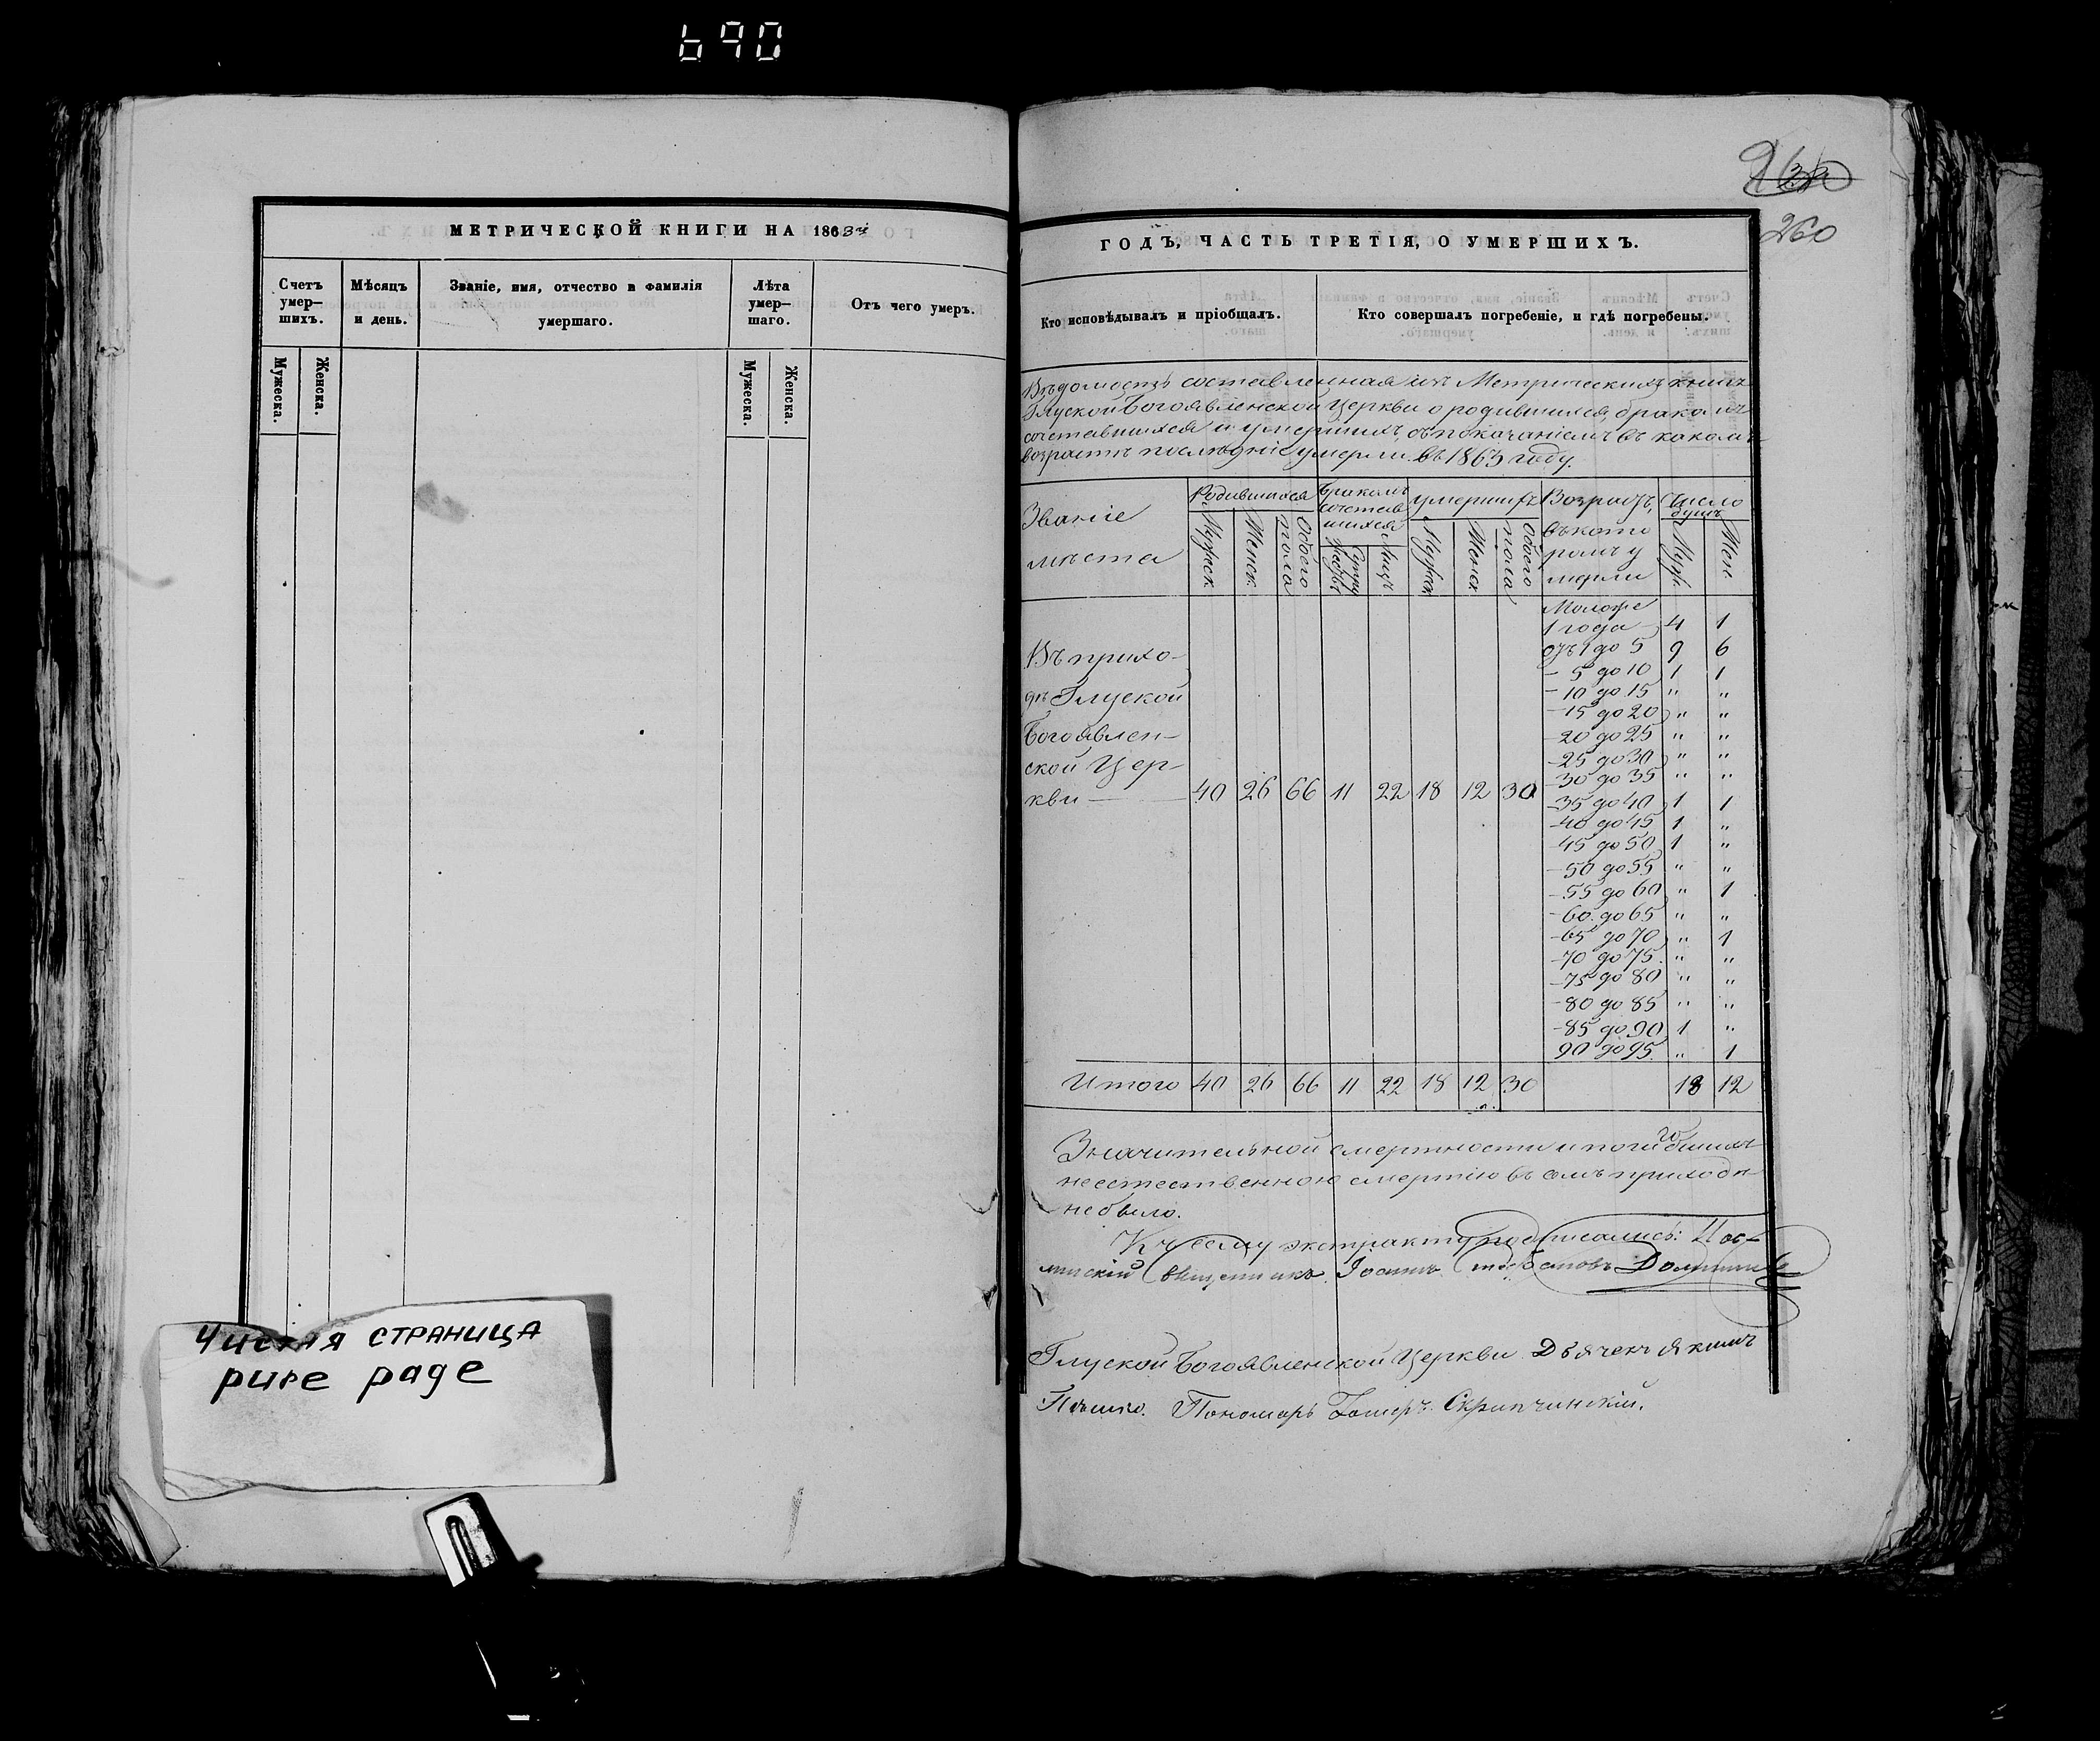 690
МЕТРИЧЕСКОЙ КНИГИ НА 1863й
Счетъ умер-шихъ.
Мѣсяцъ и день.
Званіе, имя, отчество и фамилія умершаго.
Лѣта умер-шаго.
Отъ чего умеръ.
Мужеска.
Женска.
Мужеска.
Женска.
Чистая страница
pure page
260
ГОДЪ, ЧАСТЬ ТРЕТІЯ, О УМЕРШИХЪ.
Кто исповѣдывалъ и пріобщалъ.
Кто совершалъ погребеніе, и гдѣ погребены.
Вѣдомость составленная изъ Метрическихъ книгъ
Глуской Богоявленской Церкви о родившихся, бракомъ
сочетавшихся и умершихъ, съ показаніемъ въ какомъ
возрастѣ послѣдніе умерли въ 1863 году.
Званіе мѣста
Родившихся
Мужск.
Женск.
Обоего пола
Бракомъ сочетав шихся
Лицъ
умершихъ
Мужск
Женск
Обоего пола
Возрастъ, въ кото ромъ у мерли
Число душъ
Муж.
Жен.
Въ прихо-
дѣ Глуской
Богоявлен-
ской Цер-
кви — 40 26 66 11 22 18 12 30
Моложе
1 года — 4 1
отъ 1 до 5 9 6
- 5 до 10 1 1
- 10 до 15 " "
- 15 до 20 " "
- 20 до 25 " "
- 25 до 30 " "
- 30 до 35 " "
- 35 до 40 1 1
- 40 до 45 1 "
45 до 50 1 "
- 50 до 55 " "
- 55 до 60 " 1
- 60 до 65 " "
- 65 до 70 " 1
- 70 до 75 " "
- 75 до 80 " "
- 80 до 85 " "
- 85 до 90 1 "
90 до 95 " 1
Итого 40 26 66 11 22 18 12 30 18 12
Значительной смертности и погибшихъ
неестественною смертію въ семъ приходѣ
не было.
Къ сему экстракту подписались:
Священникъ Іоаннъ
Глуской Богоявленской Церкви Дьячекъ Якимъ
Пономарь Скрипчинскій.